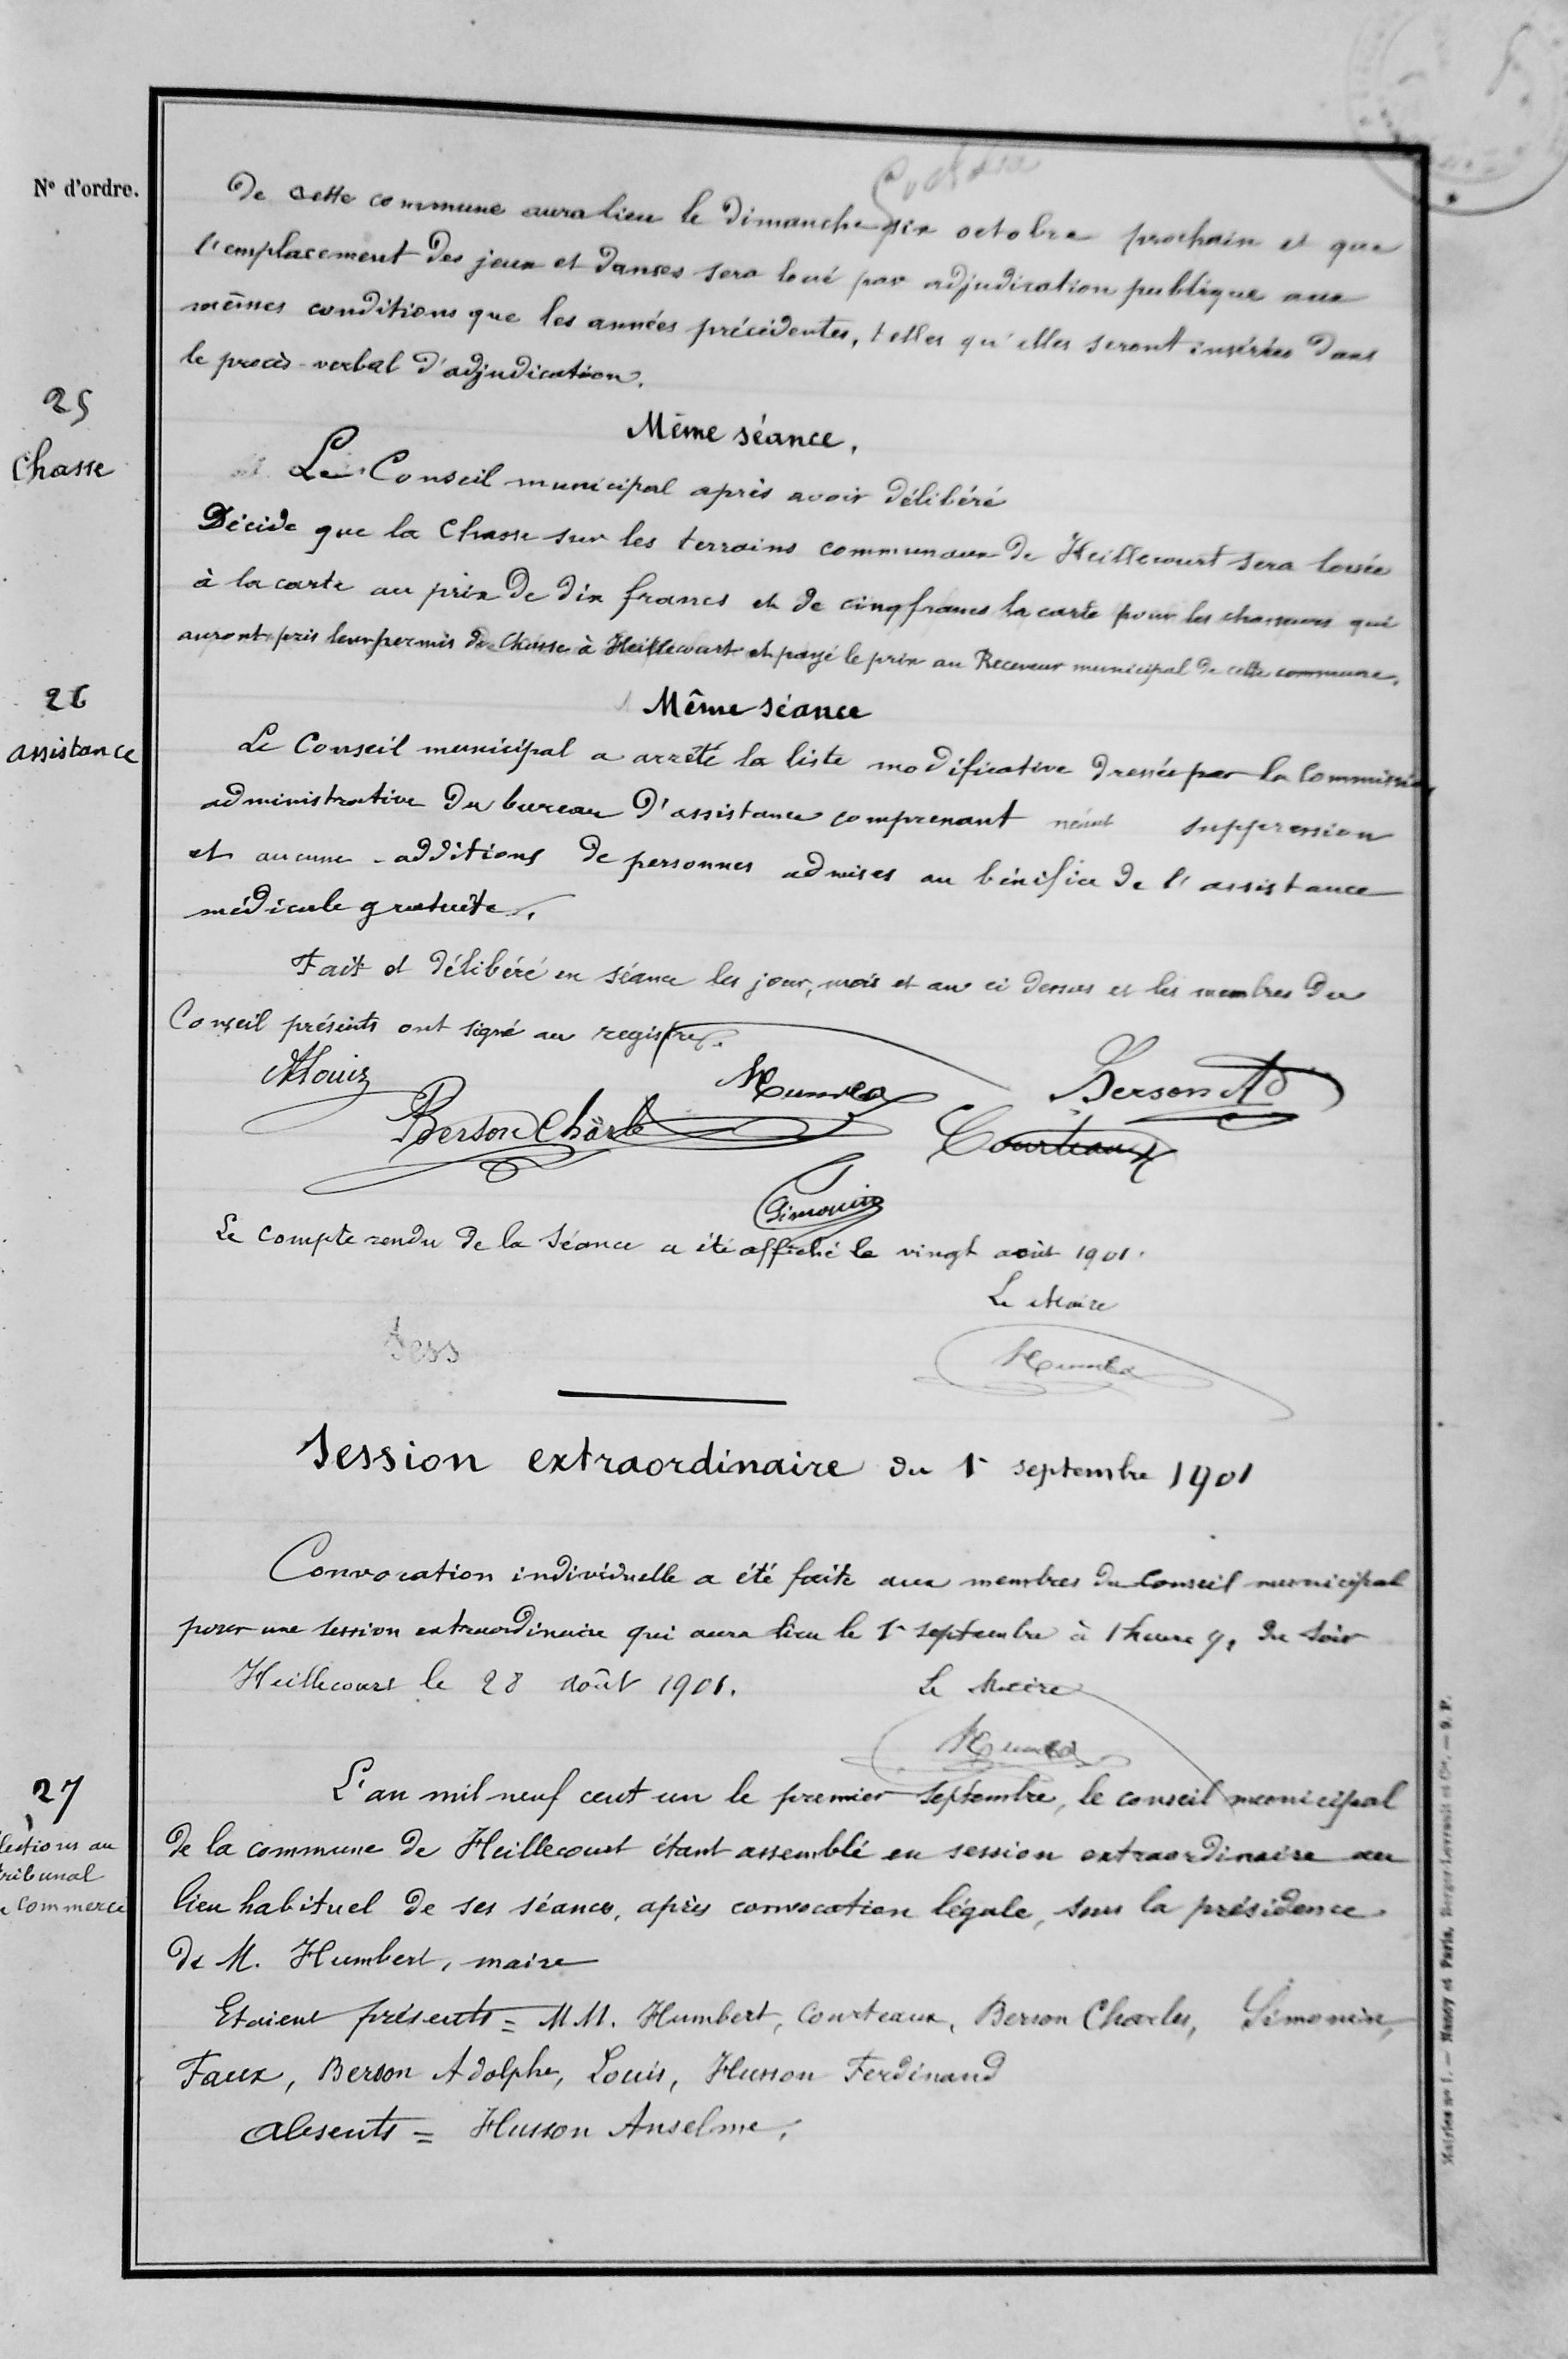 N° d'ordre.
De cette commune aura lieu le Dimanche six octobre prochain et que
l'emplacement des jeux et danses sera loué par adjudication publique aux
mêmes conditions que les années précédentes, telles qu'elles seront insérées dans
le procès-verbal d'adjudication.
25
Chasse
Même séance.
Le Conseil municipal après avoir délibéré
Décide que la Chasse sur les terrains communaux de Heillecourt sera louée
à la carte au prix de dix francs et de cinq francs la carte pour les chasseurs qui
auront pris leur permis de Chasse à Heillecourt et payé le prix au Receveur municipal de cette commune.
26
assistance
Même séance
Le Conseil municipal a arrêté la liste modificative dressée par la Commission
administrative du bureau d'assistance comprenant néant suppression
et aucune additions de personnes admises au bénéfice de l'assistance
médicale gratuite.
Fait et délibéré en séance les jour, mois et an ci dessus et les membres du
Conseil présents ont signé au registre.
Louis
Humbert
Berson Ad
Berson Charle
Courteaux
Simonin
Le compte rendu de la Séance a été affiché le vingt août 1901.
Le Maire
Sess
Humbert
Session extraordinaire du 1r septembre 1901
Convocation individuelle a été faite aux membres du Conseil municipal
pour une session extraordinaire qui aura lieu le 1r septembre à 1 heure du soir
Heillecourt le 28 août 1901.
Le Maire
Humbert
27
lections au
ribunal
commerce
L'an mil neuf cent un le premier septembre, le conseil municipal
de la commune de Heillecourt étant assemblé en session extraordinaire au
lieu habituel de ses séances, après convocation légale, sous la présidence
de M. Humbert, maire
Etaient présents = MM. Humbert, Courteaux, Berson Charles, Simonin,
Faux, Berson Adolphe, Louis, Husson Ferdinand
Absents = Husson Anselme.
Mairies n° 1. — Nancy et Paris, Berger-Levrault et Cie. — 9. P.